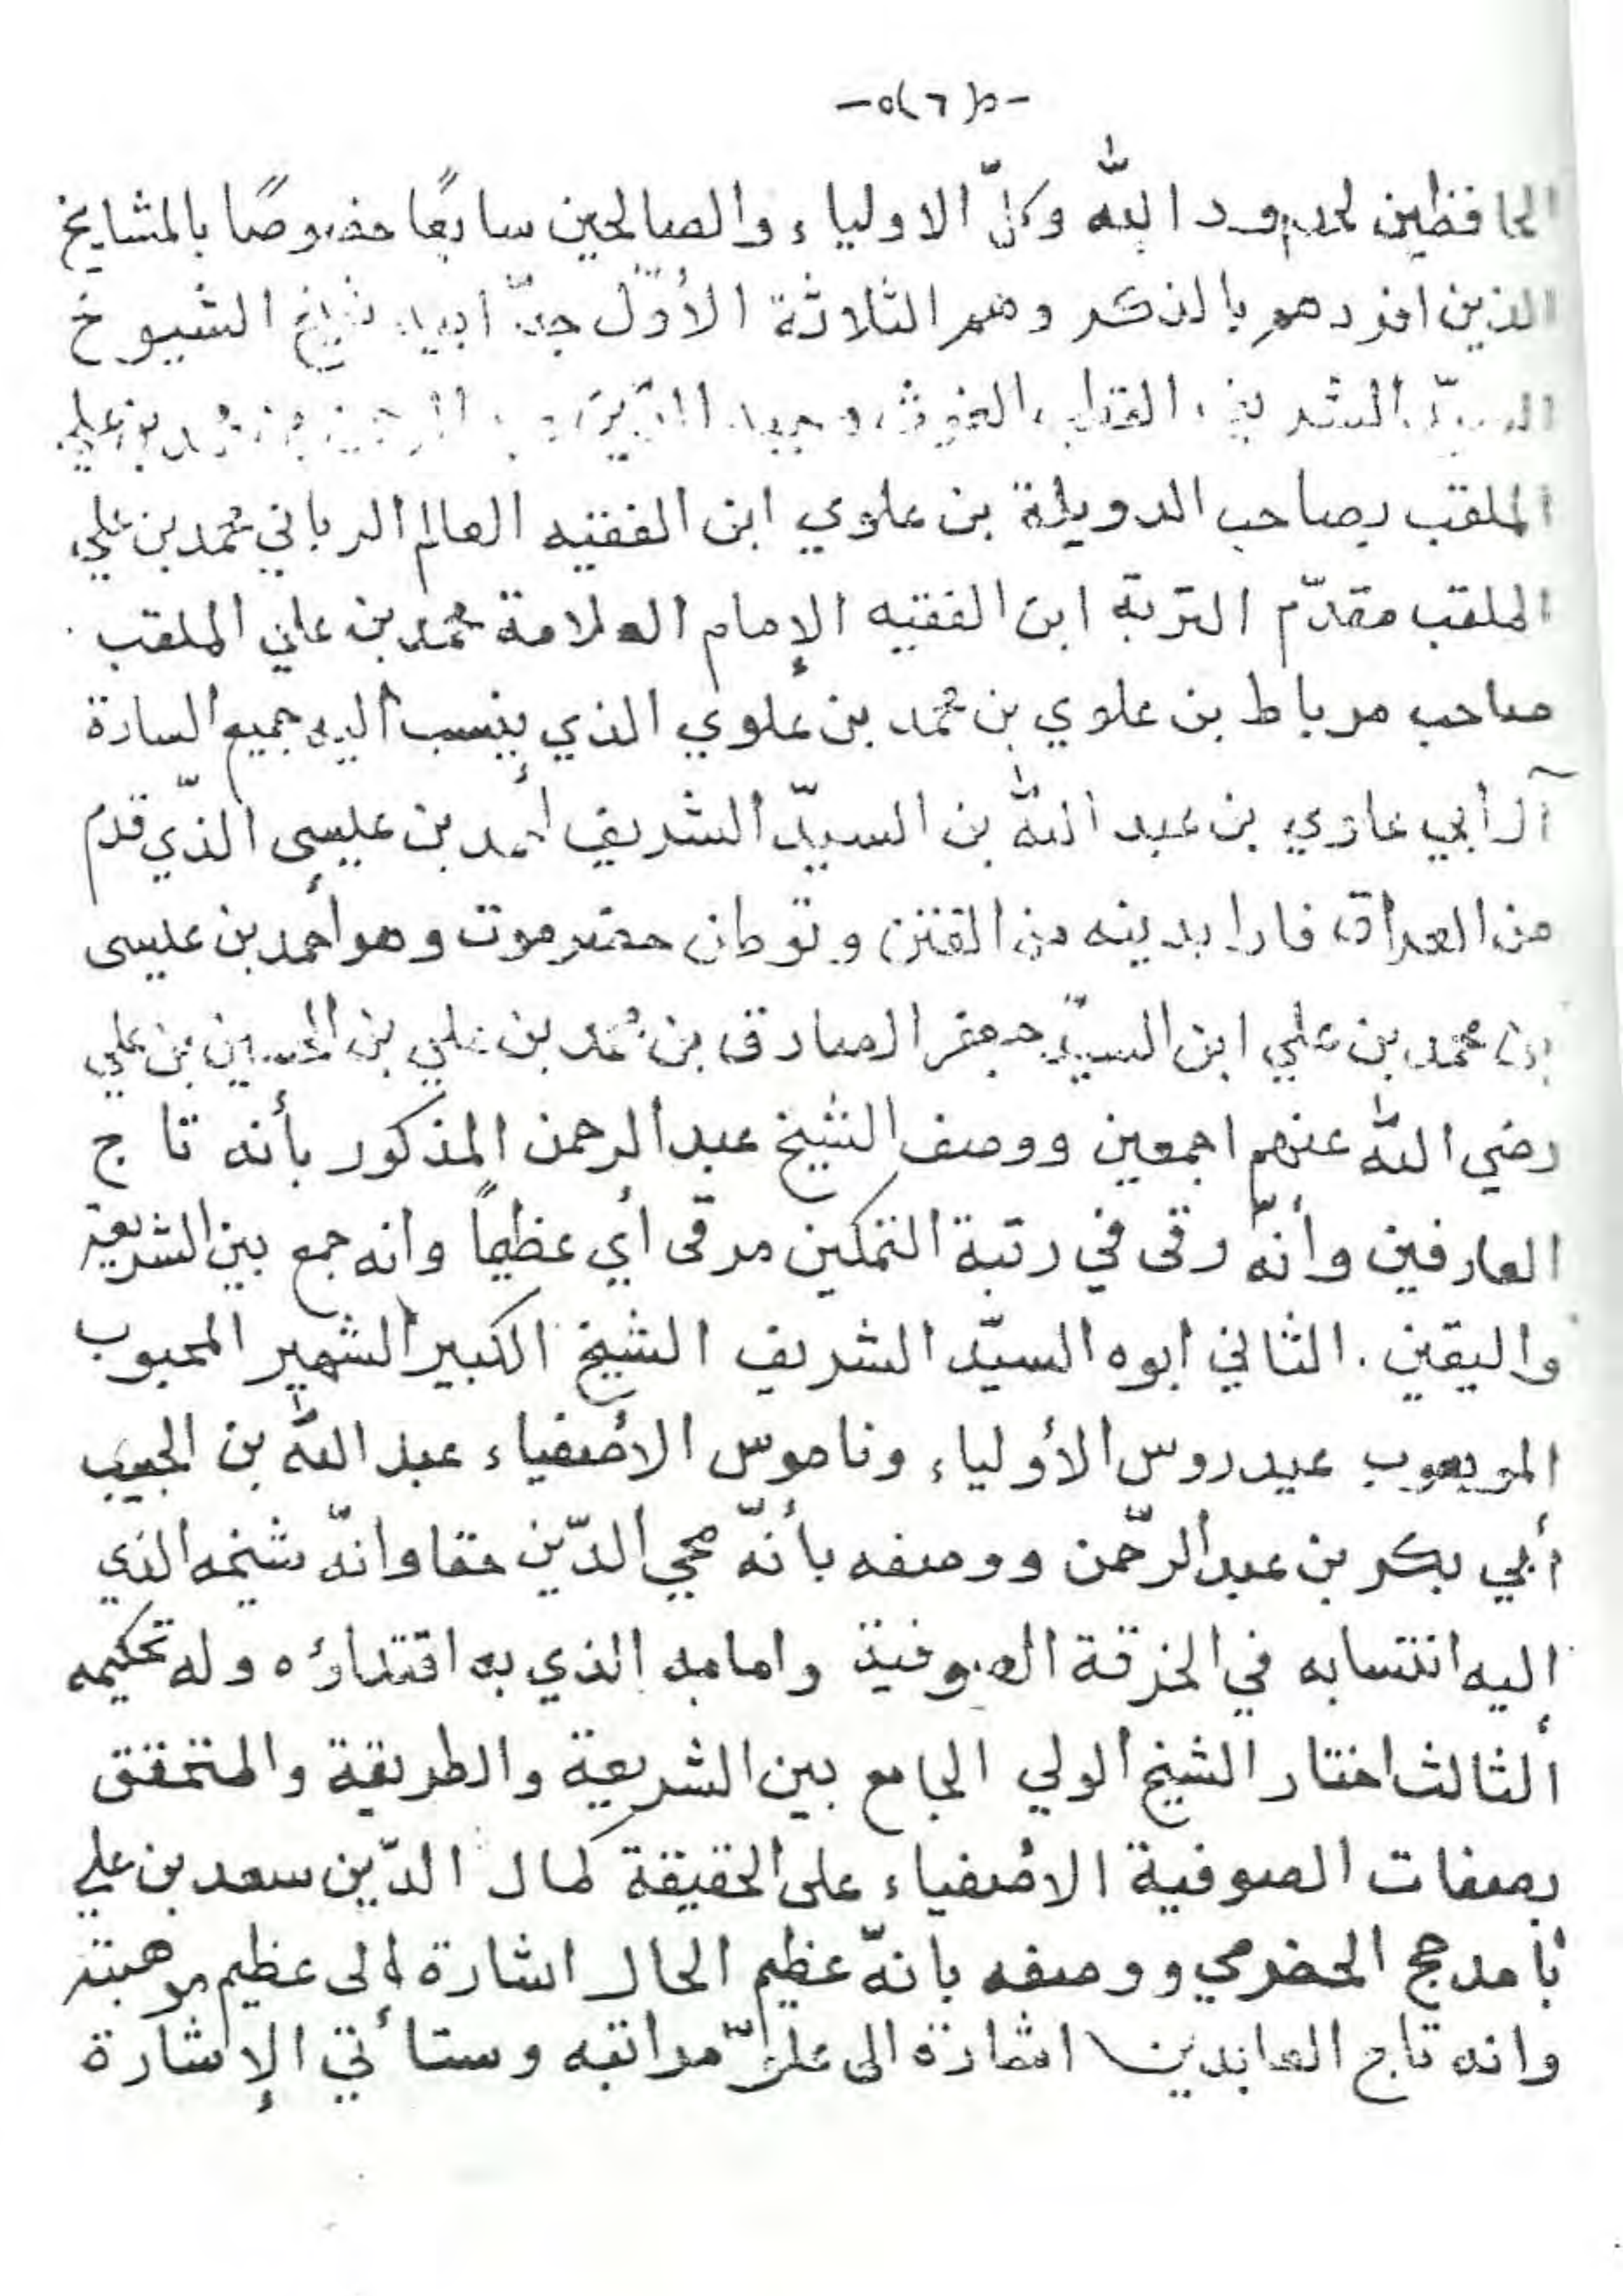 -٥(٦)٥-
الحافظين لحدود الله وكلّ الاولياء والصالحين سابعًا خصوصًا بالمشايخ
الذين افردهم بالذكر وهم الثلاثة الأوّل جدّ ابيه شيخ الشيوخ
السيّد الشريف القطب الغوث وجيه الدّين عبد الرحمن بن محمد بن علي
الملقب بصاحب الدويلة بن علوي ابن الفقيه العالم الرباني محمد بن علي
الملقب مقدّم التربة ابن الفقيه الإمام العلامة محمد بن علي الملقب
صاحب مرباط بن علوي بن محمد بن علوي الذي ينسب اليه جميع السادة
آل أبي علوي بن عبد الله بن السيّد الشريف أحمد بن عيسى الذّي قدم
من العراق فارا بدينه من الفتن وتوطن حضرموت وهو أحمد بن عيسى
بن محمد بن علي ابن السيّد جعفر الصادق بن محمد بن علي بن الحسين بن علي
رضي الله عنهم اجمعين ووصف الشيخ عبد الرحمن المذكور بأنه تاج
العارفين وأنّه رقى في رتبة التمكين مرقى أي عظيمًا وانه جمع بين الشريعة
واليقين . الثاني ابوه السيّد الشريف الشيخ الكبير الشهير المحبوب
الموهوب عيدروس الأولياء وناموس الأصفياء عبد الله بن الحبيب
أبي بكر بن عبد الرّحمن ووصفه بأنّه محي الدّين حقا وانّه شيخه الذي
إليه انتسابه في الخرقة الصوفية وامامه الذي به اقتداؤه وله تحكيمه
ألثالث اختار الشيخ ألولي الجامع بين الشريعة والطريقة والمتحقق
بصفات الصوفية الأصفياء على الحقيقة كمال الدّين سعد بن علي
بامدحج الحضرمي ووصفه بانّه عظيم الحال اشارة إلى عظيم موهبته
وانه تاج العابدين اشارة الى علوّ مراتبه وستأتي الإشارة